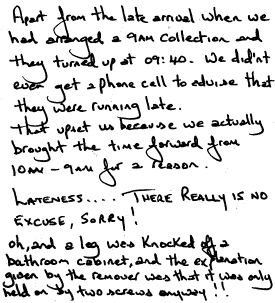 Apart from the late arrival when we
had arranged a 9AM collection and
they turned up at 09:40. We did'nt
even get a phone call to advise that
they were running late.
That upset us because we actually
brought the time forward from
10AM - 9AM for a reason.
LATENESS.... THERE REALLY IS NO
EXCUSE, SORRY!
oh, and a leg was knocked off a
bathroom cabinet, and the explanation
given by the remover was that it was only
held on by two screws anyway!!